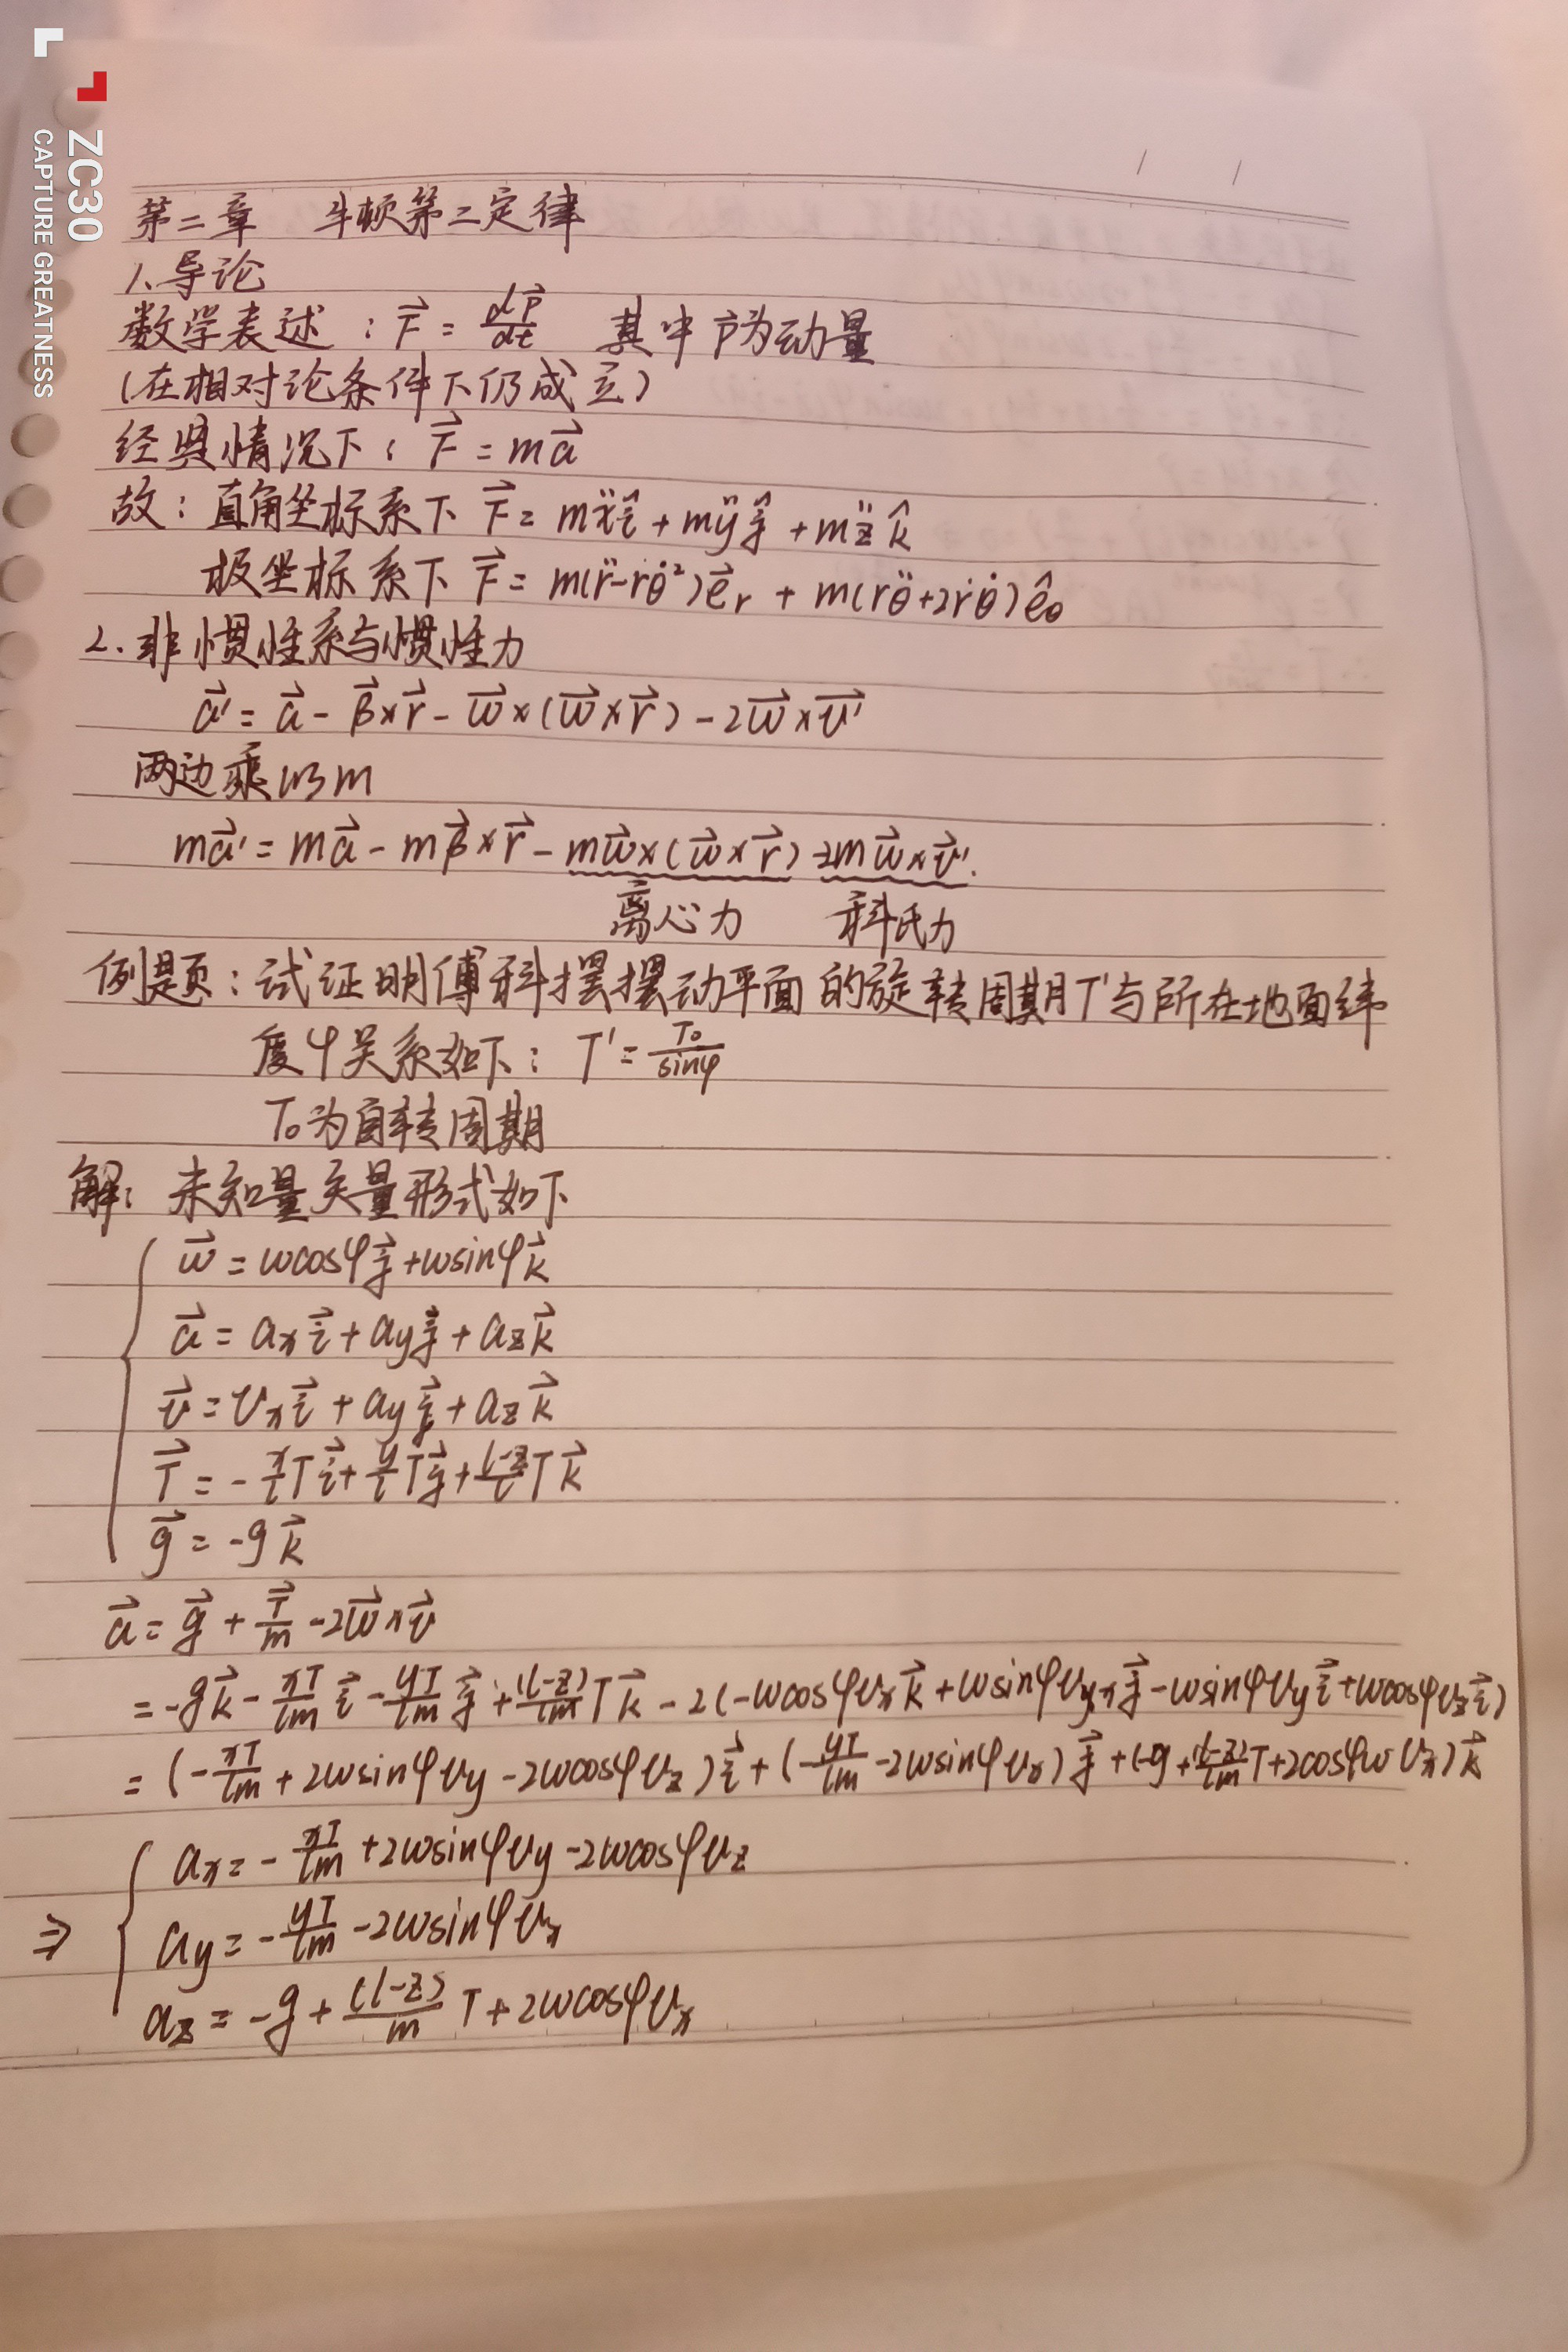 ZC30
CAPTURE GREATNESS
第二章 牛顿第二定律
1.导论
数学表述：F⃗ = dp⃗/dt 其中p⃗为动量
(在相对论条件下仍成立)
经典情况下：F⃗ = ma⃗
故：直角坐标系下 F⃗ = mẍî + mÿĵ + mz̈k̂
极坐标系下 F⃗ = m(r̈-rθ̇²)e⃗r + m(rθ̈+2ṙθ̇)êθ
2.非惯性系与惯性力
a⃗' = a⃗ - β⃗×r⃗ - ω⃗×(ω⃗×r⃗) - 2ω⃗×v⃗'
两边乘以m
ma⃗' = ma⃗ - mβ⃗×r⃗ - mω⃗×(ω⃗×r⃗) -2mω⃗×v⃗'.
离心力 科氏力
例题：试证明傅科摆摆动平面的旋转周期T'与所在地面纬
度φ关系如下：T' = T₀/sinφ
T₀为自转周期
解：未知量矢量形式如下
ω⃗ = ωcosφj⃗ + ωsinφk⃗
a⃗ = axi⃗ + ayj⃗ + azk⃗
v⃗ = vxi⃗ + ayj⃗ + azk⃗
T⃗ = -x/l Ti⃗ + y/l Tj⃗ + (l-z)/l Tk⃗
g⃗ = -gk⃗
a⃗ = g⃗ + T⃗/m - 2ω⃗×v⃗
= -gk⃗ - xT/lm i⃗ - yT/lm j⃗ + (l-z)/lm Tk⃗ - 2(-ωcosφvxk⃗ + ωsinφvxj⃗ - ωsinφvyi⃗ + ωcosφvzi⃗)
= (-xT/lm + 2ωsinφvy - 2ωcosφvz)i⃗ + (-yT/lm - 2ωsinφvx)j⃗ + (-g + (l-z)/lm T + 2cosφωvx)k⃗
ax = -xT/lm + 2ωsinφvy - 2ωcosφvz
⇒ ay = -yT/lm - 2ωsinφvx
az = -g + (l-z)/m T + 2ωcosφvx